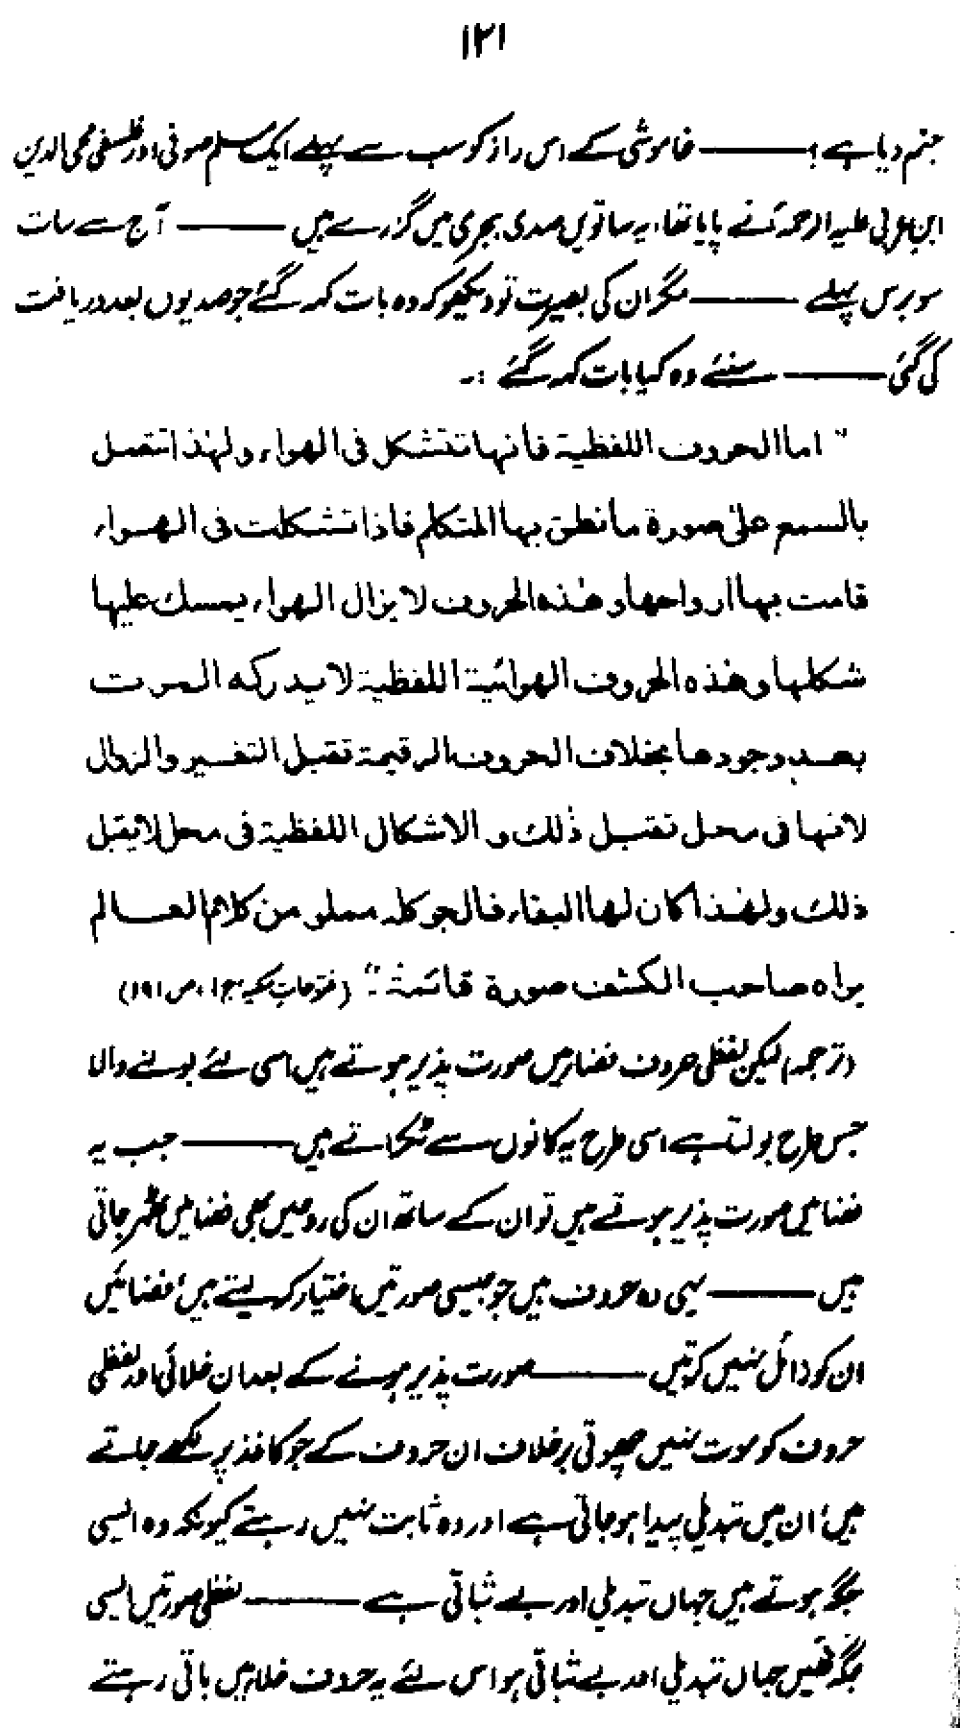 ۱۲۱
جنم دیا ہے ؟ ——— خاموشی کے اس راز کو سب سے پہلے ایک مسلم صوفی اور فلسفی محی الدین
ابن عربی علیہ الرحمۃ نے پایا تھا، یہ ساتویں صدی ہجری میں گزرے ہیں ——— آج سے سات
سو برس پہلے ——— مگر ان کی بصیرت تو دیکھو کہ وہ بات کہہ گئے جو صدیوں بعد دریافت
کی گئی ——— سنئے وہ کیا بات کہہ گئے :۔
" اما الحروف اللفظیة فانها تتشكل فی الهواء ولهذا تتصل
بالسمع علیٰ صورة ما نطق بها المتکلم فاذا تشکلت فی الهواء
قامت بها ارواحها و هٰذه الحروف لا یزال الهواء یمسك علیها
شکلها و هٰذه الحروف الهوائیة اللفظیة لا یدرکه الموت
بعد وجودها بخلاف الحروف الرقیمة تقبل التغییر والزوال
لانها فی محل تقبل ذٰلك و الاشکال اللفظیة فی محل لا یقبل
ذٰلك ولهٰذا کان لها البقاء فالجو کله مملو من کلام العالم
یراه صاحب الکشف صورة قائمة ۔" (فتوحات مکیہ ج ۱، ص ۱۹۱)
(ترجمہ) لیکن لفظی حروف فضا میں صورت پذیر ہوتے ہیں اسی لئے بولنے والا
جس طرح بولتا ہے اسی طرح یہ کانوں سے ٹکراتے ہیں ——— جب یہ
فضا میں صورت پذیر ہوتے ہیں تو ان کے ساتھ ان کی روحیں بھی فضا میں ٹھہر جاتی
ہیں ——— یہی وہ حروف ہیں جو جیسی صورتیں اختیار کر لیتے ہیں، فضائیں
ان کو زائل نہیں کرتیں ——— صورت پذیر ہونے کے بعد ان خلائی اور لفظی
حروف کو موت نہیں چھوتی برخلاف ان حروف کے جو کاغذ پر لکھے جاتے
ہیں، ان میں تبدیلی پیدا ہو جاتی ہے اور وہ ثابت نہیں رہتے کیونکہ وہ ایسی
جگہ ہوتے ہیں جہاں تبدیلی اور بے ثباتی ہے ——— لفظی صورتیں ایسی
جگہ نہیں جہاں تبدیلی اور بے ثباتی ہو اس لئے یہ حروف خلا میں باقی رہتے